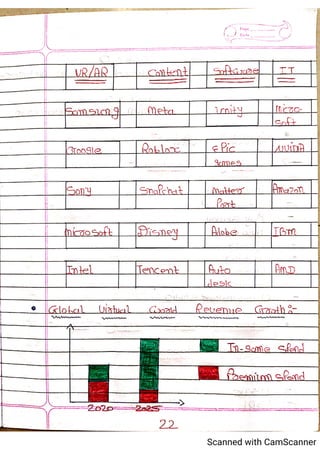 Page
Date
VR/AR Content Software IT
Samsung Meta Unity Micro-
soft
Google Roblox Epic NVIDIA
games
Sony Snapchat Matter Amazon
Port
Microsoft Disney Adobe IBM
Intel Tencent Auto AMD
desk
• Global Virtual World Revenue Growth:-
In-game spend
Premium spend
2020 2025
22
Scanned with CamScanner